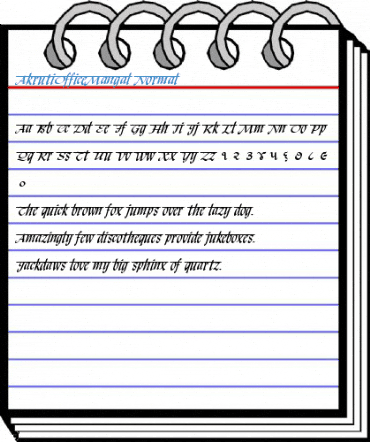 AkrutiOfficeMangal Normal
Aa Bb Cc Dd Ee Ff Gg Hh Ii Jj Kk Ll Mm Nn Oo Pp
Qq Rr Ss Tt Uu Vv Ww Xx Yy Zz १ २ ३ ४ ५ ६ ७ ८ ९
०
The quick brown fox jumps over the lazy dog.
Amazingly few discotheques provide jukeboxes.
Jackdaws love my big sphinx of quartz.